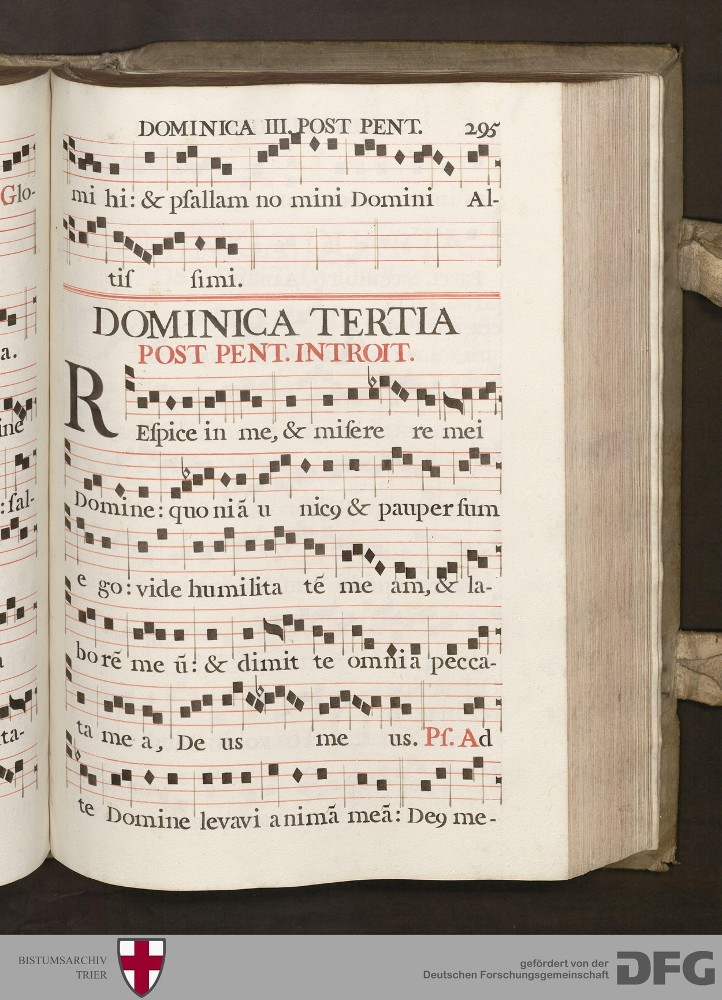 DOMINICA III. POST PENT. 295
Glo-
mi hi: & pſallam no mini Domini Al-
tiſ ſimi.
DOMINICA TERTIA
POST PENT. INTROIT.
a.
REſpice in me, & miſere re mei
ine
Domine: quo niã u nicꝯ & pauper ſum
: ſal-
e go: vide humilita tẽ me am, & la-
borẽ me ũ: & dimit te omnia pecca-
ta-
ta me a, De us me us. Pſ. Ad
te Domine levavi animã meã: Deꝯ me-
BISTUMSARCHIV
TRIER
gefördert von der
Deutschen Forschungsgemeinschaft
DFG